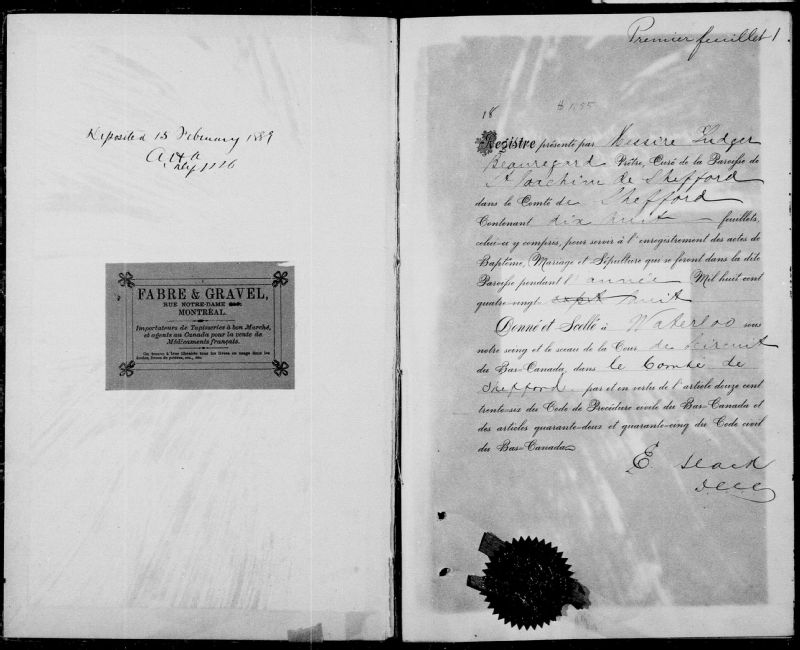 Deposited 15 February 1889
FABRE & GRAVEL,
RUE NOTRE-DAME
MONTRÉAL.
Importateurs de Tapisseries à bon Marché,
et agents au Canada pour la vente de
Médicaments français.
On trouve à leur librairie tous les livres en usage dans les
écoles, livres de prières, etc., etc.
Premier feuillet 1
18
Registre présenté par Messire Ludger
Beauregard Prêtre, Curé de la Paroisse de
St Joachim de Shefford
dans le Comté de Shefford
Contenant dix huit feuillets,
celui-ci y compris, pour servir à l'enregistrement des actes de
Baptême, Mariage et Sépulture qui se feront dans la dite
Paroisse pendant l'année Mil huit cent
quatre-vingt sept huit
Donné et Scellé à Waterloo sous
notre seing et le sceau de la Cour de Circuit
du Bas-Canada, dans le Comté de
Shefford par et en vertu de l'article douze cent
trente-six du Code de Procédure civile du Bas-Canada et
des articles quarante-deux et quarante-cinq du Code civil
du Bas-Canada.
E Slack